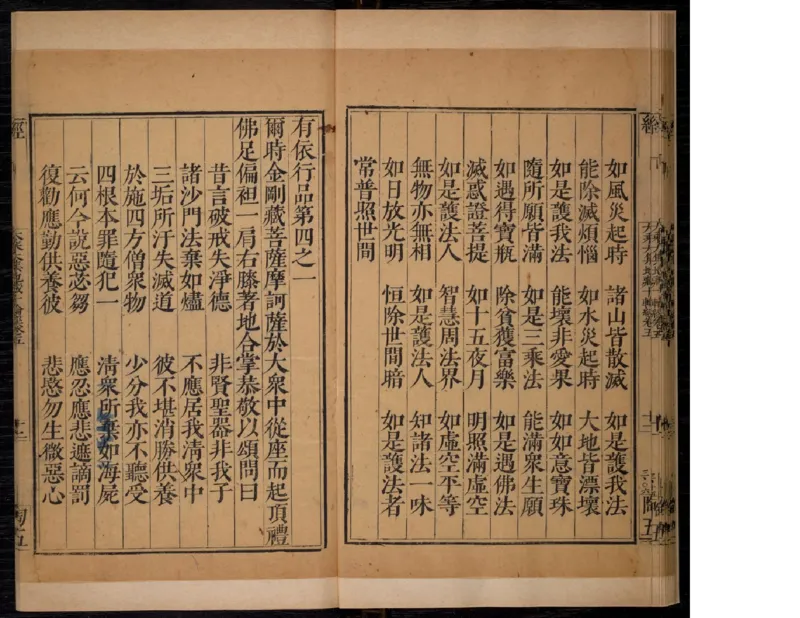 如風災起時 諸山皆散滅 如是護我法
能除滅煩惱 如水災起時 大地皆漂壞
如是護我法 能壞非愛果 如如意寶珠
隨所願皆滿 如是三乘法 能滿衆生願
如遇得寶瓶 除貧獲富樂 如是遇佛法
滅惑證菩提 如十五夜月 明照滿虛空
如是護法人 智慧周法界 如虛空平等
無物亦無相 如是護法人 知諸法一味
如日放光明 恒除世間暗 如是護法者
常普照世間
有依行品第四之一
爾時金剛藏菩薩摩訶薩於大衆中從座而起頂禮
佛足偏袒一肩右膝著地合掌恭敬以頌問曰
昔言破戒失淨德 非賢聖器非我子
諸沙門法棄如燼 不應居我清衆中
三垢所汙失滅道 彼不堪消勝供養
於施四方僧衆物 少分我亦不聽受
四根本罪隨犯一 清衆所棄如海屍
云何今說惡苾芻 應忍應悲遮謫罰
復勸應勤供養彼 悲愍勿生微惡心
經